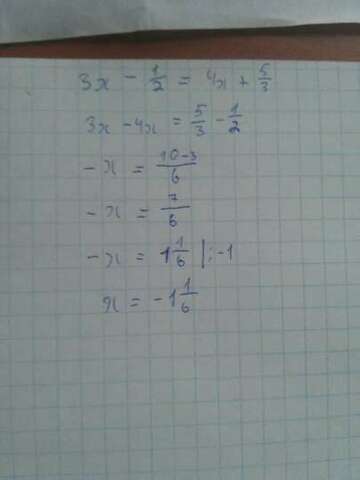 3x - 1/2 = 4x + 5/3
3x - 4x = 5/3 - 1/2
-x = 10-3/6
-x = 7/6
-x = 1 1/6 |:-1
x = -1 1/6